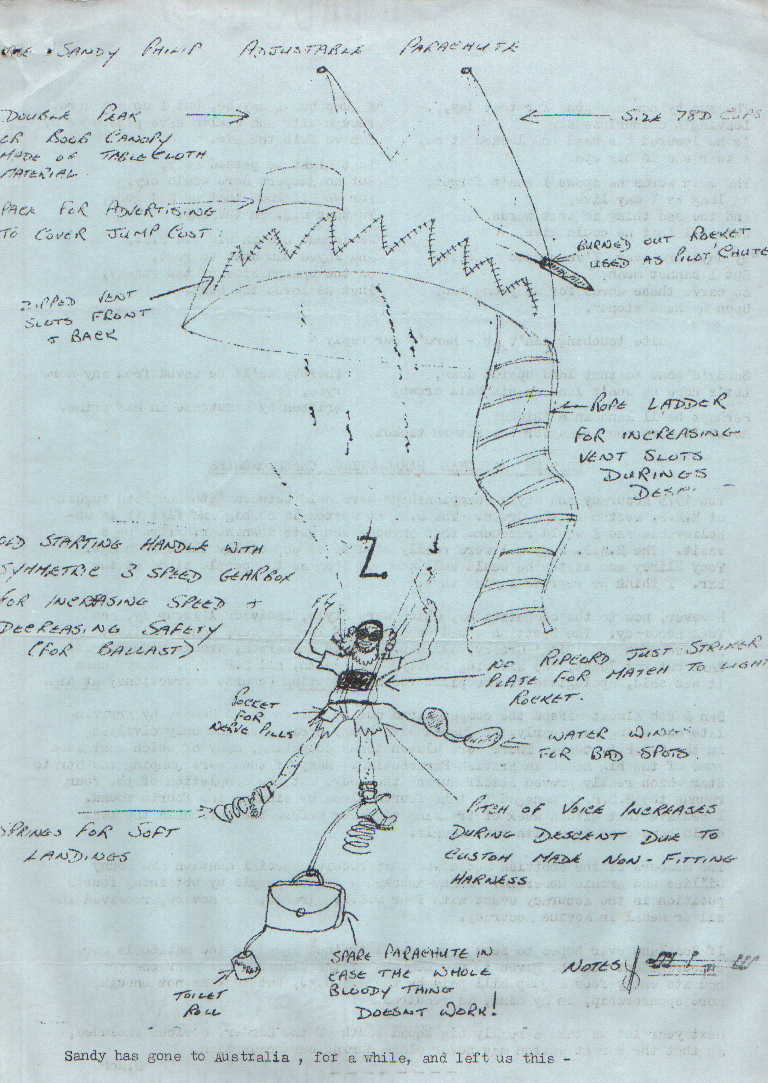 THE SANDY PHILIP ADJUSTABLE PARACHUTE
DOUBLE PEAK
OR BOOB CANOPY
MADE OF TABLECLOTH
MATERIAL
SIZE 78D CUPS
PACK FOR ADVERTISING
TO COVER JUMP COST.
BURNED OUT ROCKET
USED AS PILOT CHUTE
ZIPPED VENT
SLOTS FRONT
+ BACK
ROPE LADDER
FOR INCREASING
VENT SLOTS
DURINGS
OLD STARTING HANDLE WITH
SYMMETRIC 3 SPEED GEARBOX
FOR INCREASING SPEED +
DECREASING SAFETY
(FOR BALLAST)
NO RIPCORD JUST STRIKER
PLATE FOR MATCH TO LIGHT
ROCKET.
POCKET
FOR
NERVE PILLS
WATER WINGS
FOR BAD SPOTS.
SPRINGS FOR SOFT
LANDINGS
PITCH OF VOICE INCREASES
DURING DESCENT DUE TO
CUSTOM MADE NON-FITTING
HARNESS
SPARE PARACHUTE IN
CASE THE WHOLE
BLOODY THING
DOESNT WORK!
TOILET
ROLL
NOTES
Sandy has gone to Australia , for a while, and left us this -